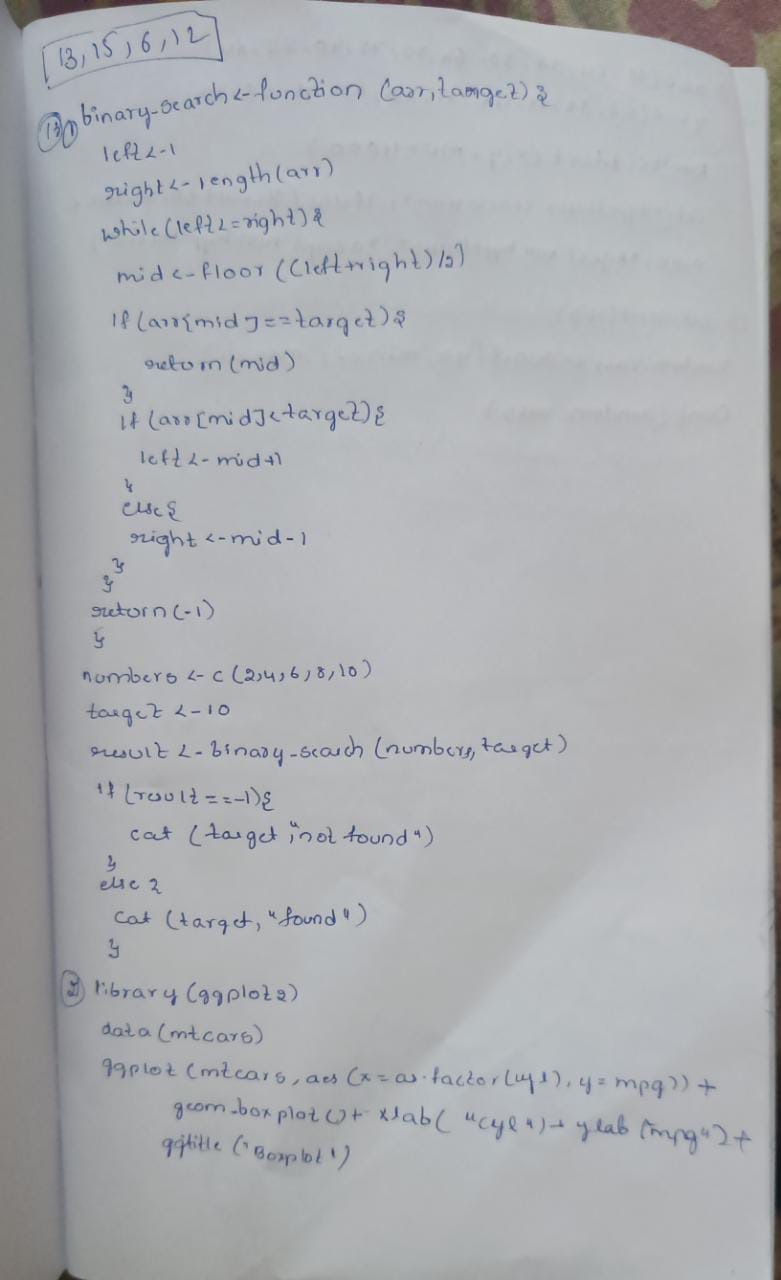 13, 15, 6, 12
13) 1) binary-search <- function (arr, target) {
left <- 1
right <- length(arr)
while (left <= right) {
mid <- floor ((left+right)/2)
if (arr[mid] == target) {
return (mid)
}
if (arr[mid] < target) {
left <- mid+1
}
else {
right <- mid-1
}
}
return (-1)
}
numbers <- c (2,4,6,8,10)
target <- 10
result <- binary-search (numbers, target)
if (result == -1) {
cat (target, "not found")
}
else {
cat (target, "found")
}
2) library (ggplot2)
data (mtcars)
ggplot (mtcars, aes (x = as.factor(cyl), y = mpg)) +
geom-boxplot () + xlab ("cyl") + ylab ("mpg") +
ggtitle ("Boxplot")